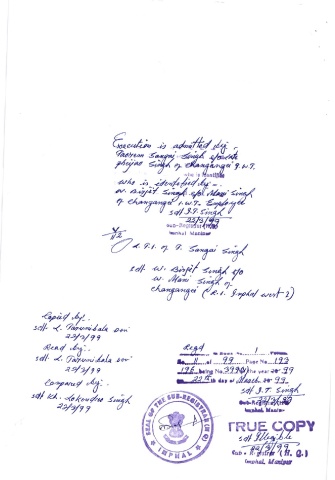 Execution is admitted by:-
Paonam Sangai Singh s/o late
phijao Singh of changangei I.W.T.
who is Manithe
who is identified by:-
W Birjit Singh s/o Mani Singh
of changangei I.W.T. Employee
sd/- I.T. Singh
22/3/99
Sub-Registrar (HQ)
Imphal Manipur
L.T.I. of P. Sangai Singh
sd/- W. Birjit Singh s/o
W. Mani Singh of
changangei (R.I. Imphal west-2)
Copied by:-
sd/- L. Parunibala Devi
22/3/99
Read by:-
sd/- L. Parunibala Devi
22/3/99
Compared by:-
sd/- Kh. Lokendro Singh
22/3/99
Regd
in Book No. 1
No. 11 of 99 Page No 193
196 being No. 3990 the year 1999
on 22nd day of March 99
sd/- I.T. Singh
22/3/99
Sub-Registrar (HQ)
Imphal Manipur
SEAL OF THE SUB-REGISTRAR (HQ)
IMPHAL
TRUE COPY
sd/- Illegible
22/3/99
Sub-Registrar (H.Q.)
Imphal, Manipur